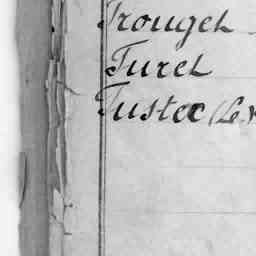 Trouget
Turet
Tustec (Le